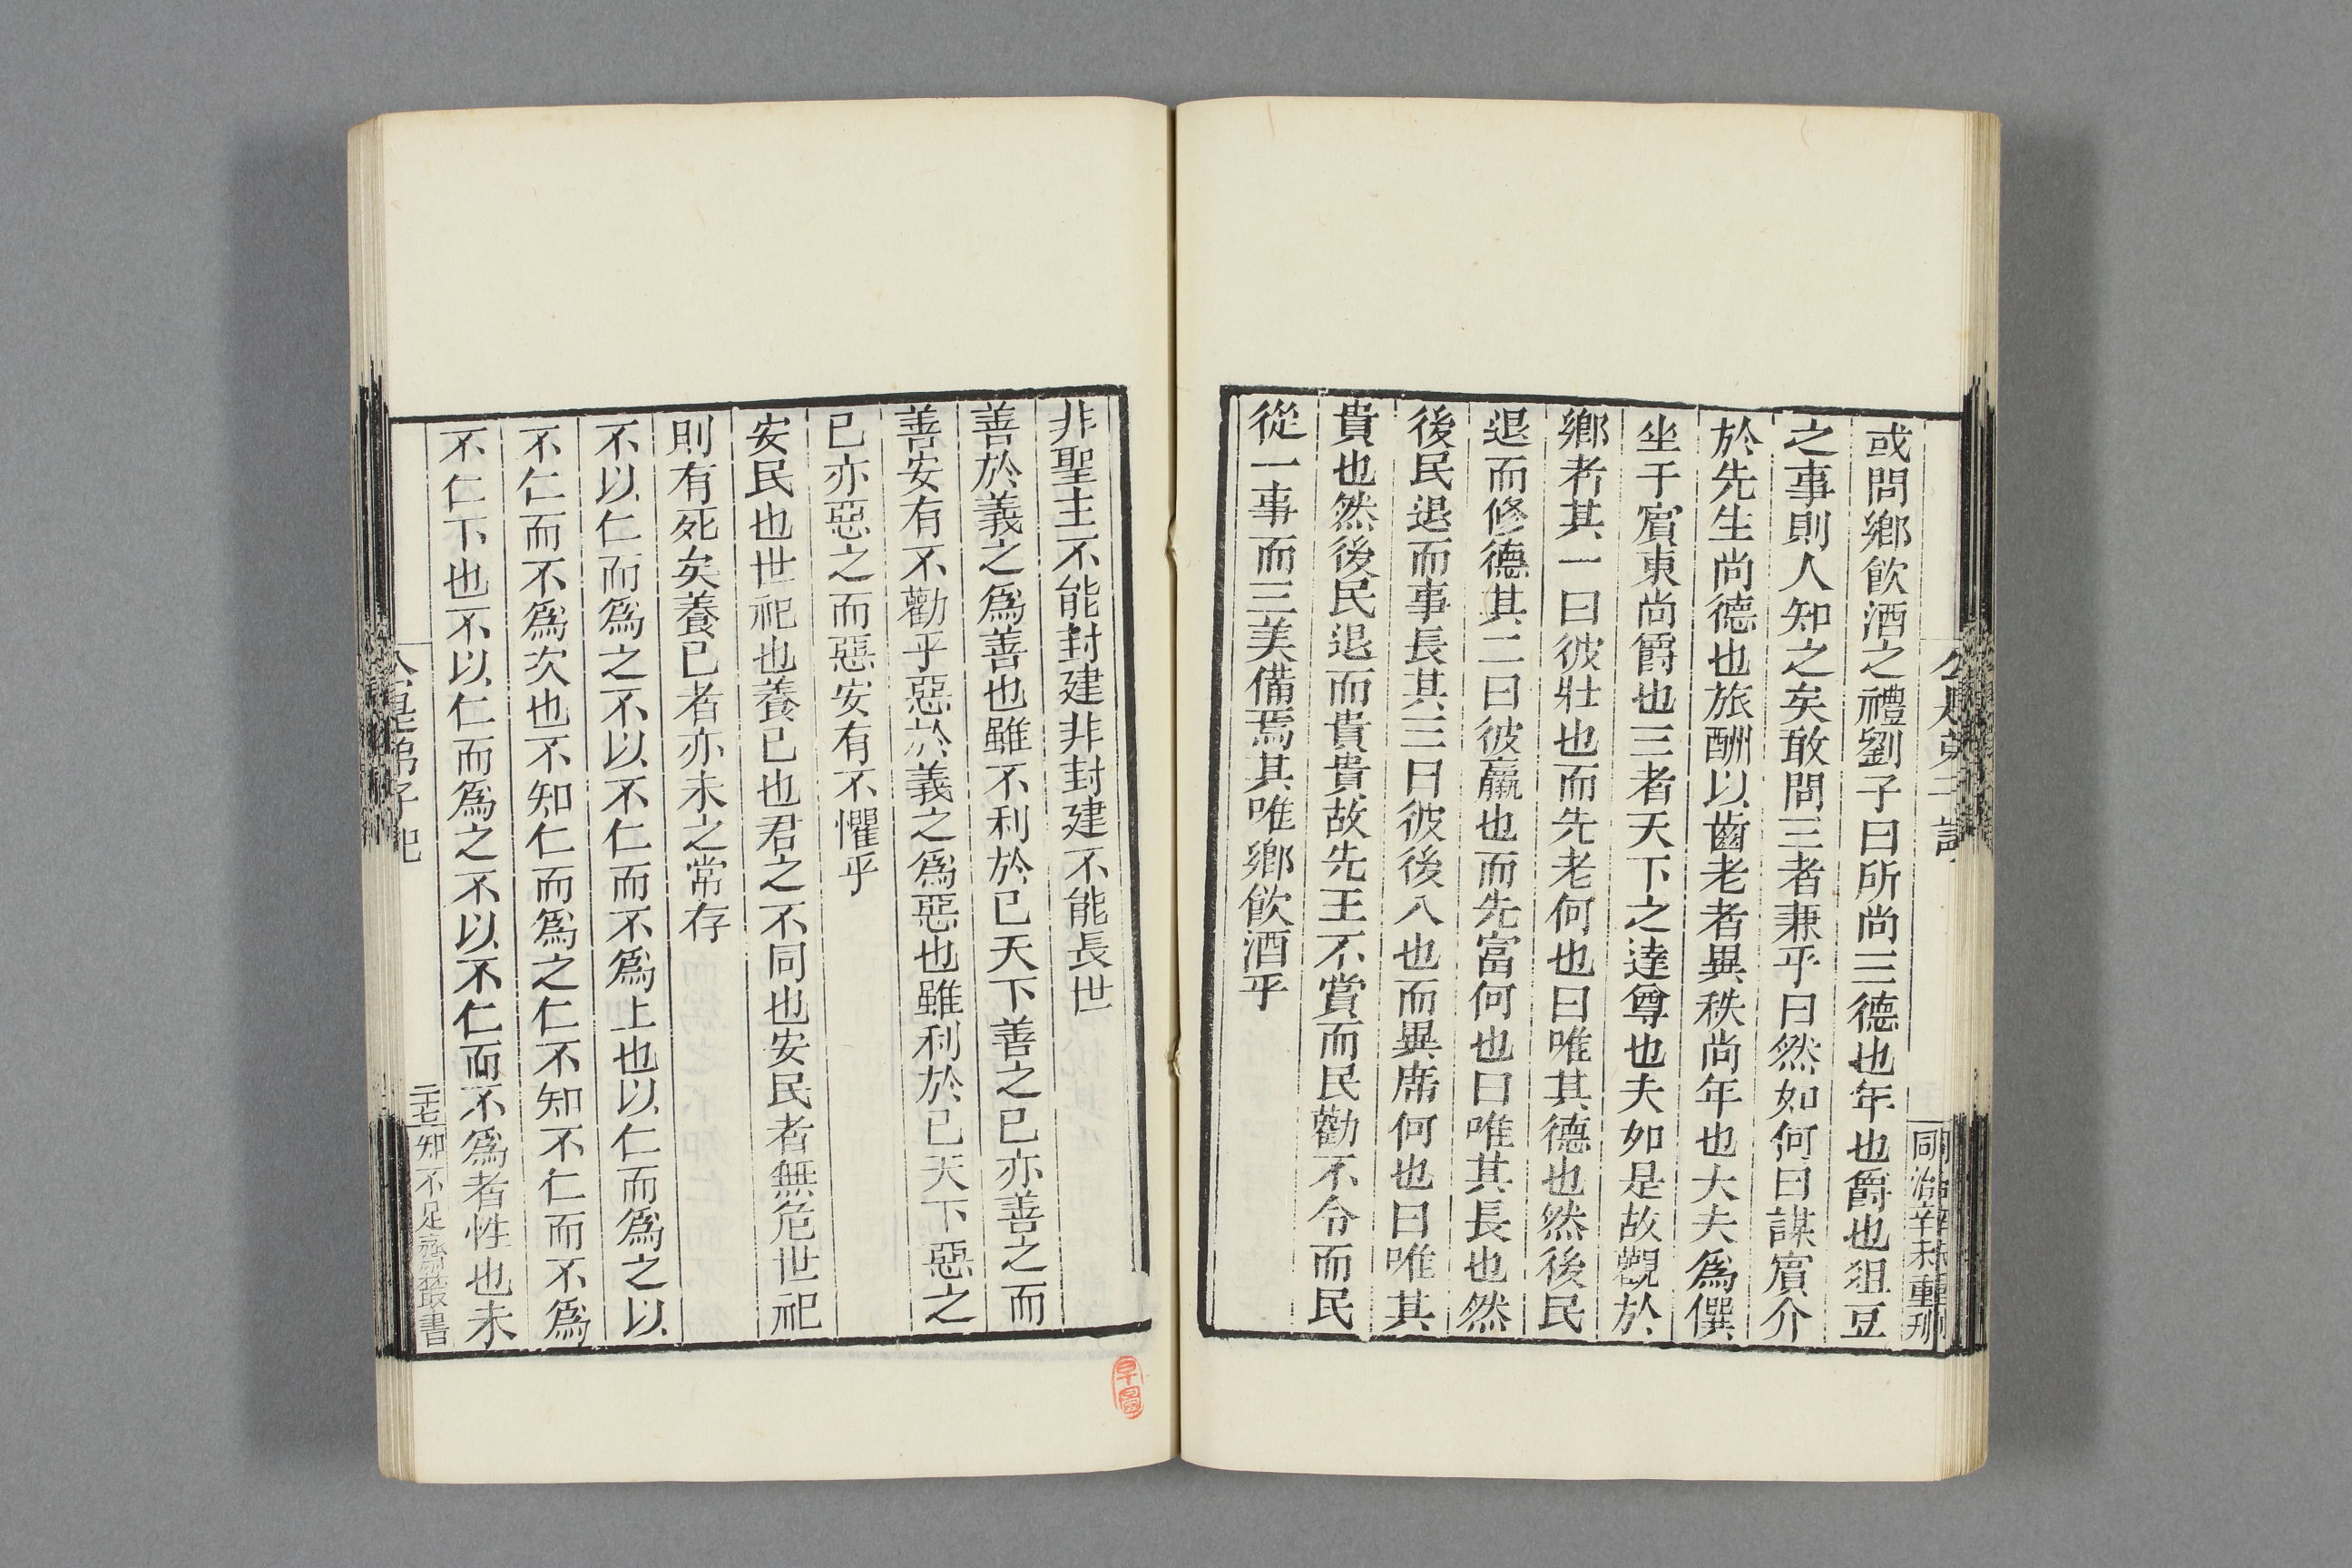 同治辛未重刊
或問鄉飲酒之禮劉子曰所尚三德也年也爵也俎豆
之事則人知之矣敢問三者兼乎曰然如何曰謀賓介
於先生尚德也旅酬以齒老者異秩尚年也大夫為僎
坐于賓東尚爵也三者天下之達尊也夫如是故觀於
鄉者其一曰彼壯也而先老何也曰唯其德也然後民
退而修德其二曰彼羸也而先富何也曰唯其長也然
後民退而事長其三曰彼後入也而異席何也曰唯其
貴也然後民退而貴貴故先王不賞而民勸不令而民
從一事而三美備焉其唯鄉飲酒乎
非聖主不能封建非封建不能長世
善於義之為善也雖不利於己天下善之己亦善之而
善安有不勸乎惡於義之為惡也雖利於己天下惡之
己亦惡之而惡安有不懼乎
安民也世祀也養己也君之不同也安民者無危世祀
則有死矣養己者亦未之常存
不以仁而為之不以不仁而不為上也以仁而為之以
不仁而不為次也不知仁而為之仁不知不仁而不為
不仁下也不以仁而為之不以不仁而不為者性也未
公是弟子記
二十七
知不足齋叢書